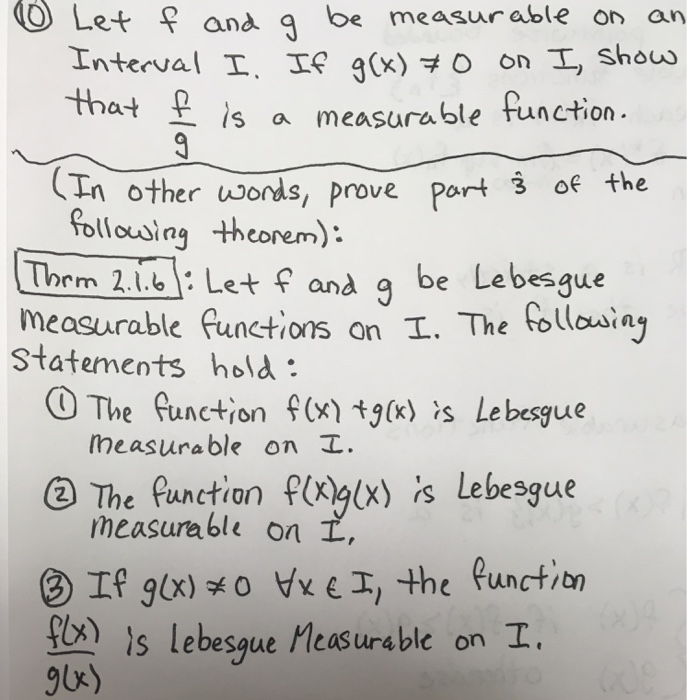 ⑩ Let f and g be measurable on an
Interval I. If g(x) ≠ 0 on I, show
that f/g is a measurable function.
(In other words, prove part 3 of the
following theorem):
Thrm 2.1.6: Let f and g be Lebesgue
measurable functions on I. The following
Statements hold:
① The function f(x) + g(x) is Lebesgue
measurable on I.
② The function f(x)g(x) is Lebesgue
measurable on I,
③ If g(x) ≠ 0 ∀x ∈ I, the function
f(x)/g(x) is Lebesgue Measurable on I.